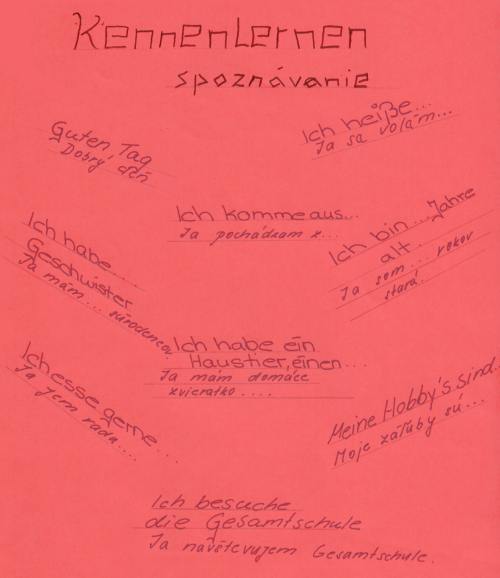 Kennenlernen
spoznávanie
Guten Tag
Dobrý deň
Ich heiße...
Ja sa volám...
Ich komme aus...
Ja pochádzam z...
Ich bin... Jahre
alt.
Ja som... rokov
stará.
Ich habe...
Geschwister
Ja mám... súrodencov
Ich habe ein
Haustier, einen...
Ja mám domáce
zvieratko....
Ich esse gerne...
Ja jem rada....
Meine Hobby's sind...
Moje záľuby sú...
Ich besuche
die Gesamtschule
Ja navštevujem Gesamtschule.